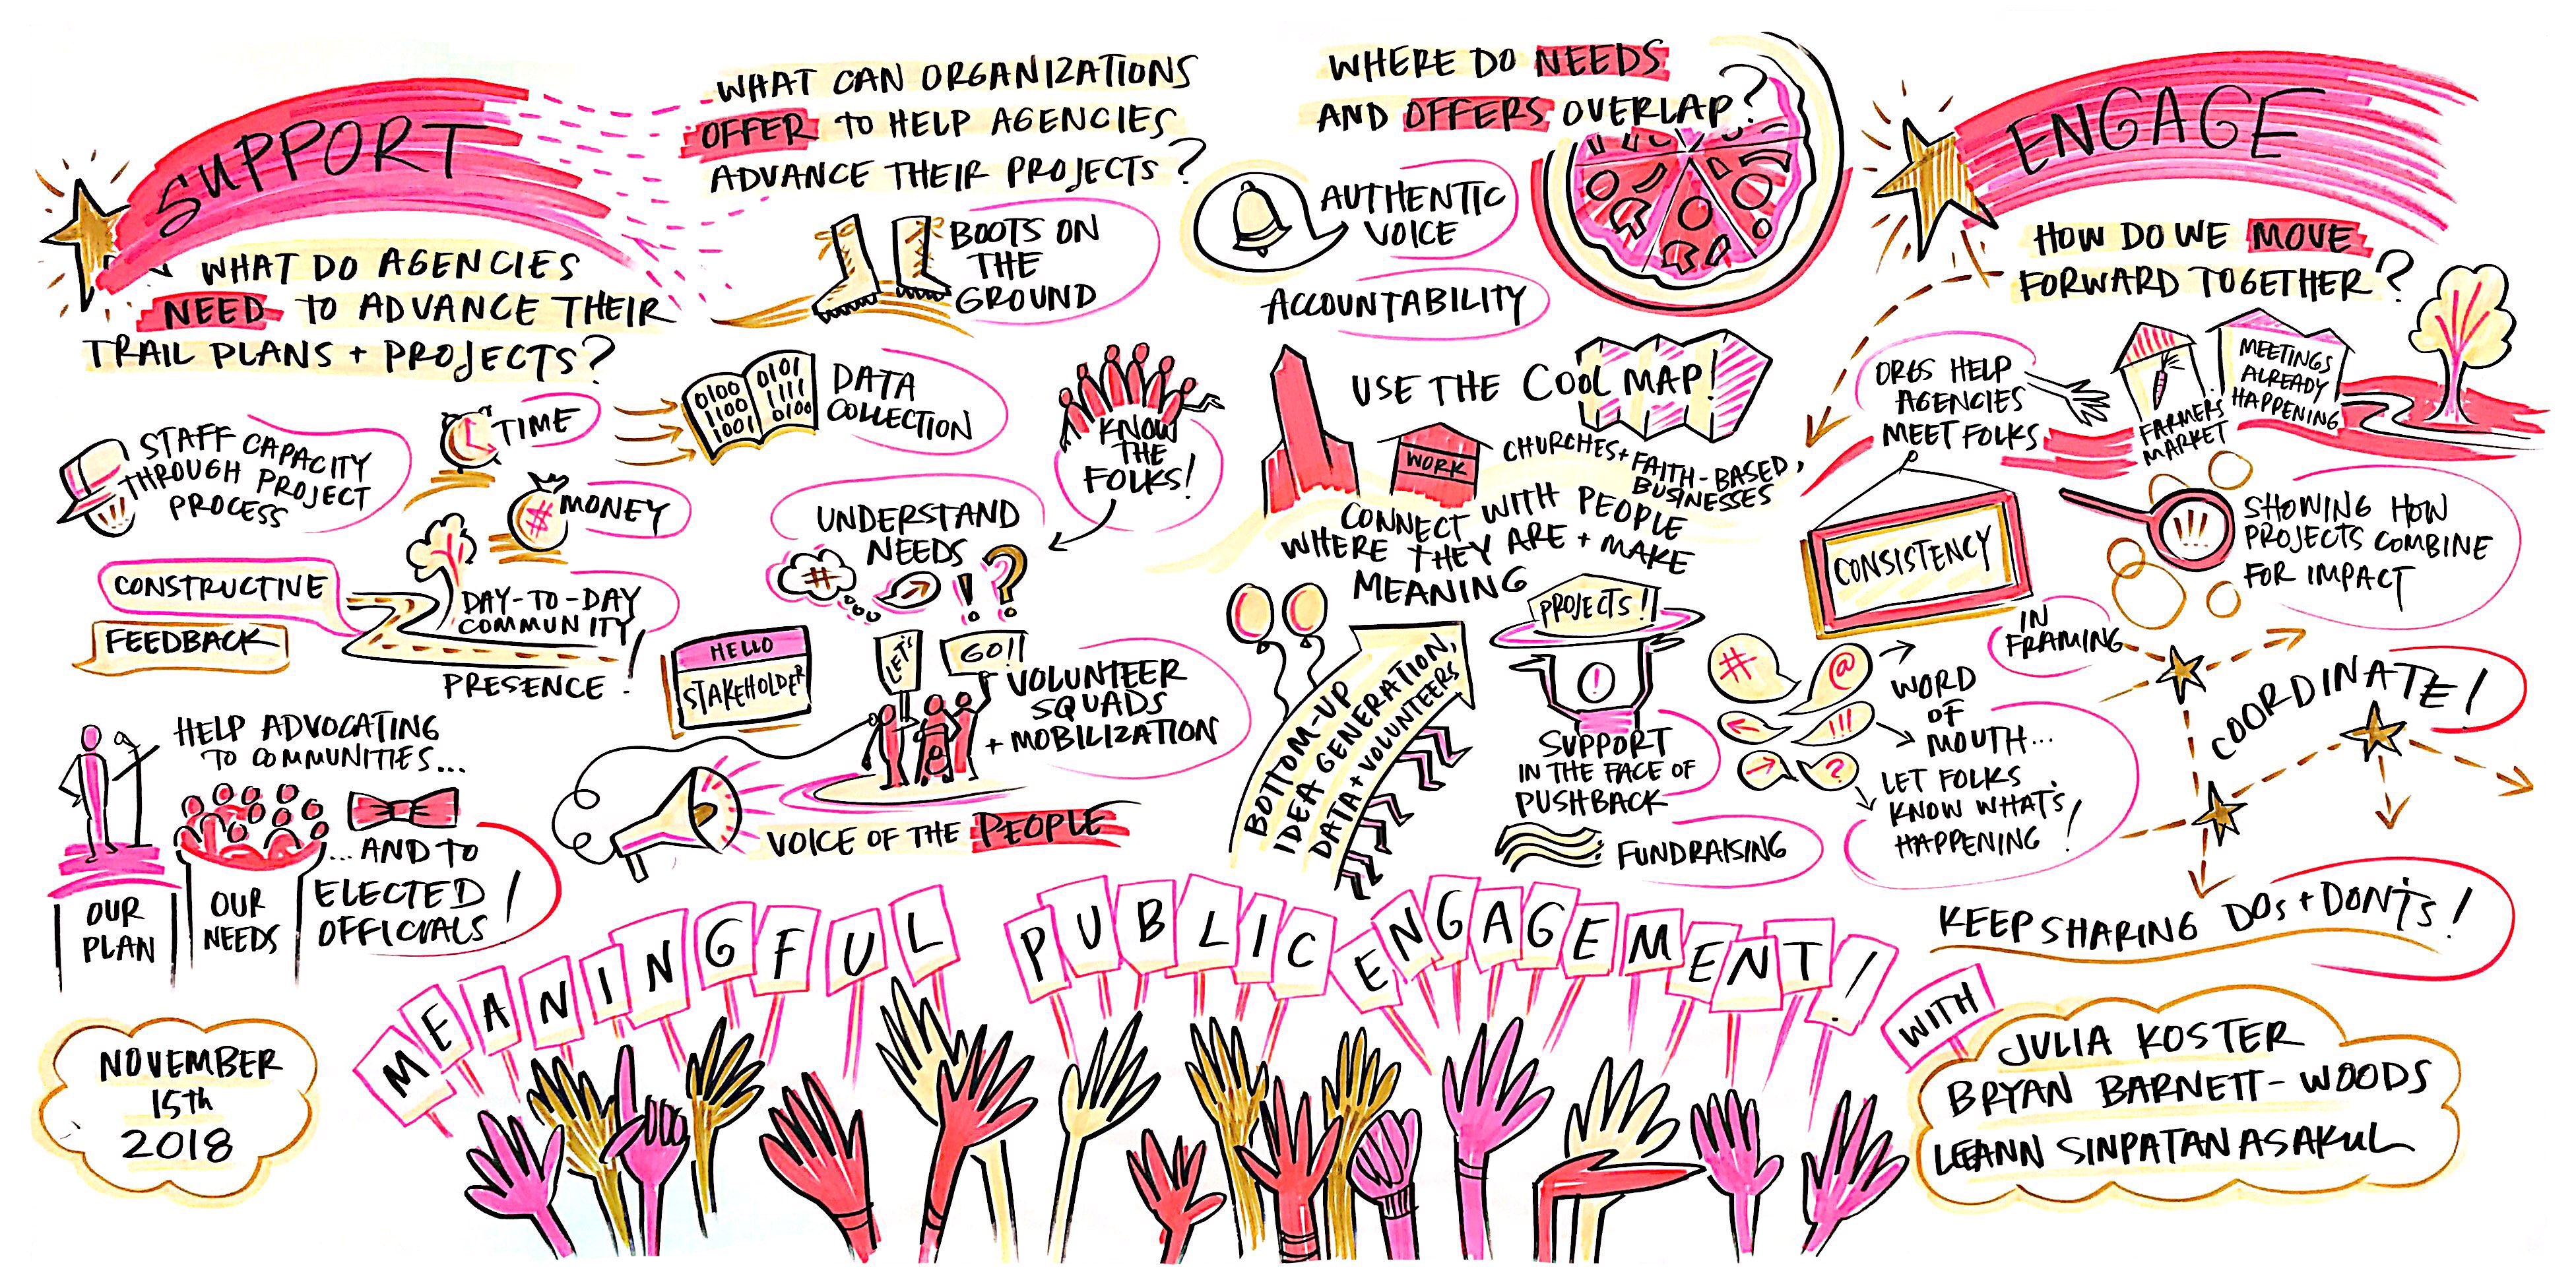 SUPPORT
WHAT DO AGENCIES
NEED TO ADVANCE THEIR
TRAIL PLANS + PROJECTS?
STAFF CAPACITY
THROUGH PROJECT
PROCESS
TIME
MONEY
CONSTRUCTIVE
FEEDBACK
DAY-TO-DAY
COMMUNITY
PRESENCE!
HELP ADVOCATING
TO COMMUNITIES...
...AND TO
ELECTED
OFFICIALS!
OUR
PLAN
OUR
NEEDS
WHAT CAN ORGANIZATIONS
OFFER TO HELP AGENCIES
ADVANCE THEIR PROJECTS?
BOOTS ON
THE
GROUND
0100
1100
1001
0101
1111
0100
DATA
COLLECTION
KNOW
THE
FOLKS!
UNDERSTAND
NEEDS
#
! ?
HELLO
STAKEHOLDER
LET'S
GO!!
VOLUNTEER
SQUADS
+ MOBILIZATION
VOICE OF THE PEOPLE
WHERE DO NEEDS
AND OFFERS OVERLAP?
AUTHENTIC
VOICE
ACCOUNTABILITY
USE THE COOL MAP!
WORK
CHURCHES + FAITH-BASED,
BUSINESSES
CONNECT WITH PEOPLE
WHERE THEY ARE + MAKE
MEANING
BOTTOM-UP
IDEA GENERATION,
DATA + VOLUNTEERS
PROJECTS!!
!
SUPPORT
IN THE FACE OF
PUSHBACK
FUNDRAISING
ENGAGE
HOW DO WE MOVE
FORWARD TOGETHER?
ORGS HELP
AGENCIES
MEET FOLKS
FARMERS
MARKET
MEETINGS
ALREADY
HAPPENING
CONSISTENCY
IN
FRAMING
!!!
SHOWING HOW
PROJECTS COMBINE
FOR IMPACT
#
@
!!!
?
WORD
OF
MOUTH...
LET FOLKS
KNOW WHAT'S
HAPPENING!
COORDINATE!
KEEP SHARING DOs + DON'Ts!
MEANINGFUL PUBLIC ENGAGEMENT!
NOVEMBER
15th
2018
WITH
JULIA KOSTER
BRYAN BARNETT-WOODS
LEANN SINPATANASAKUL